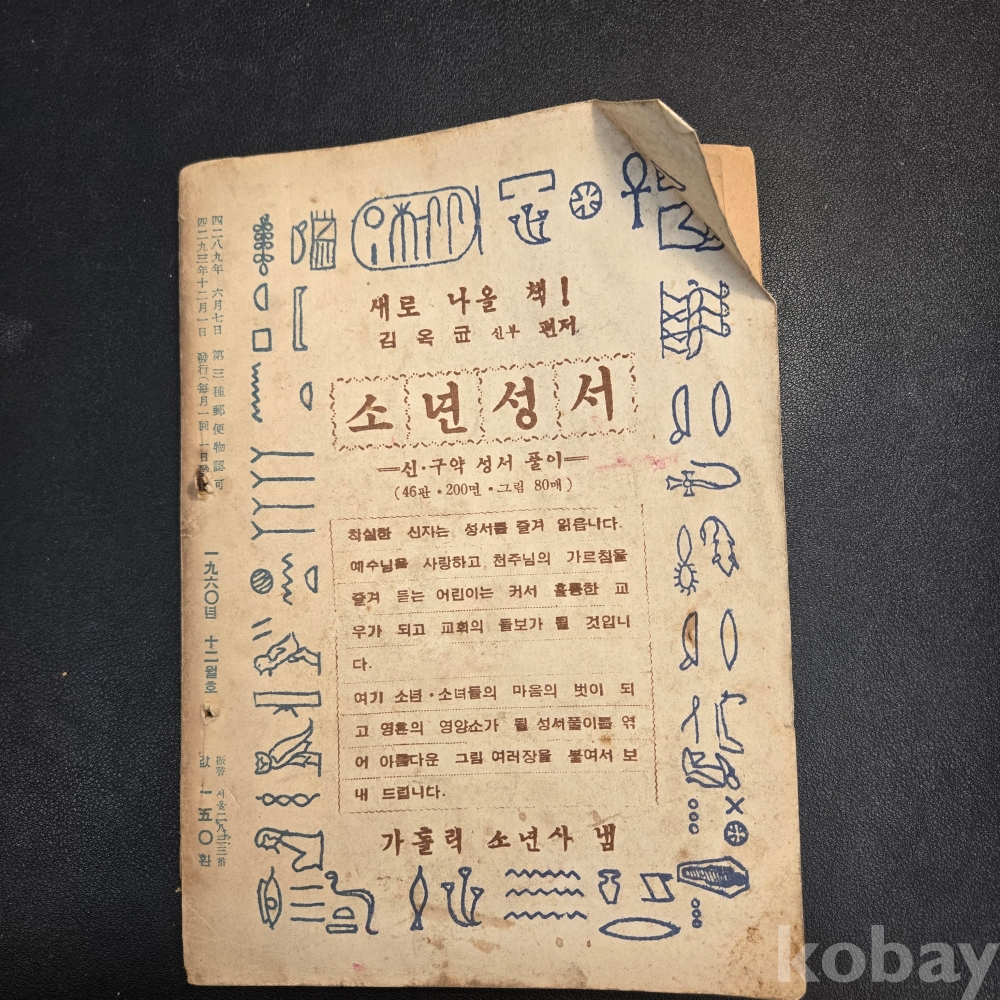 四二八九年 六月七日 第三種郵便物認可
四二九三年十二月一日 發行(每月一回 一日
一九六〇년 十二월호
값 一五〇환
새로 나올 책!
김옥균 신부 편저
소년성서
=신·구약 성서 풀이=
(46판·200면·그림 80매)
착실한 신자는 성서를 즐겨 읽읍니다.
예수님을 사랑하고 천주님의 가르침을
즐겨 듣는 어린이는 커서 훌륭한 교
우가 되고 교회의 돌보가 될 것입니
다.
여기 소년·소녀들의 마음의 벗이 되
고 영혼의 영양소가 될 성서풀이를 엮
어 아름다운 그림 여러장을 붙여서 보
내 드립니다.
가톨릭 소년사 냄
kobay